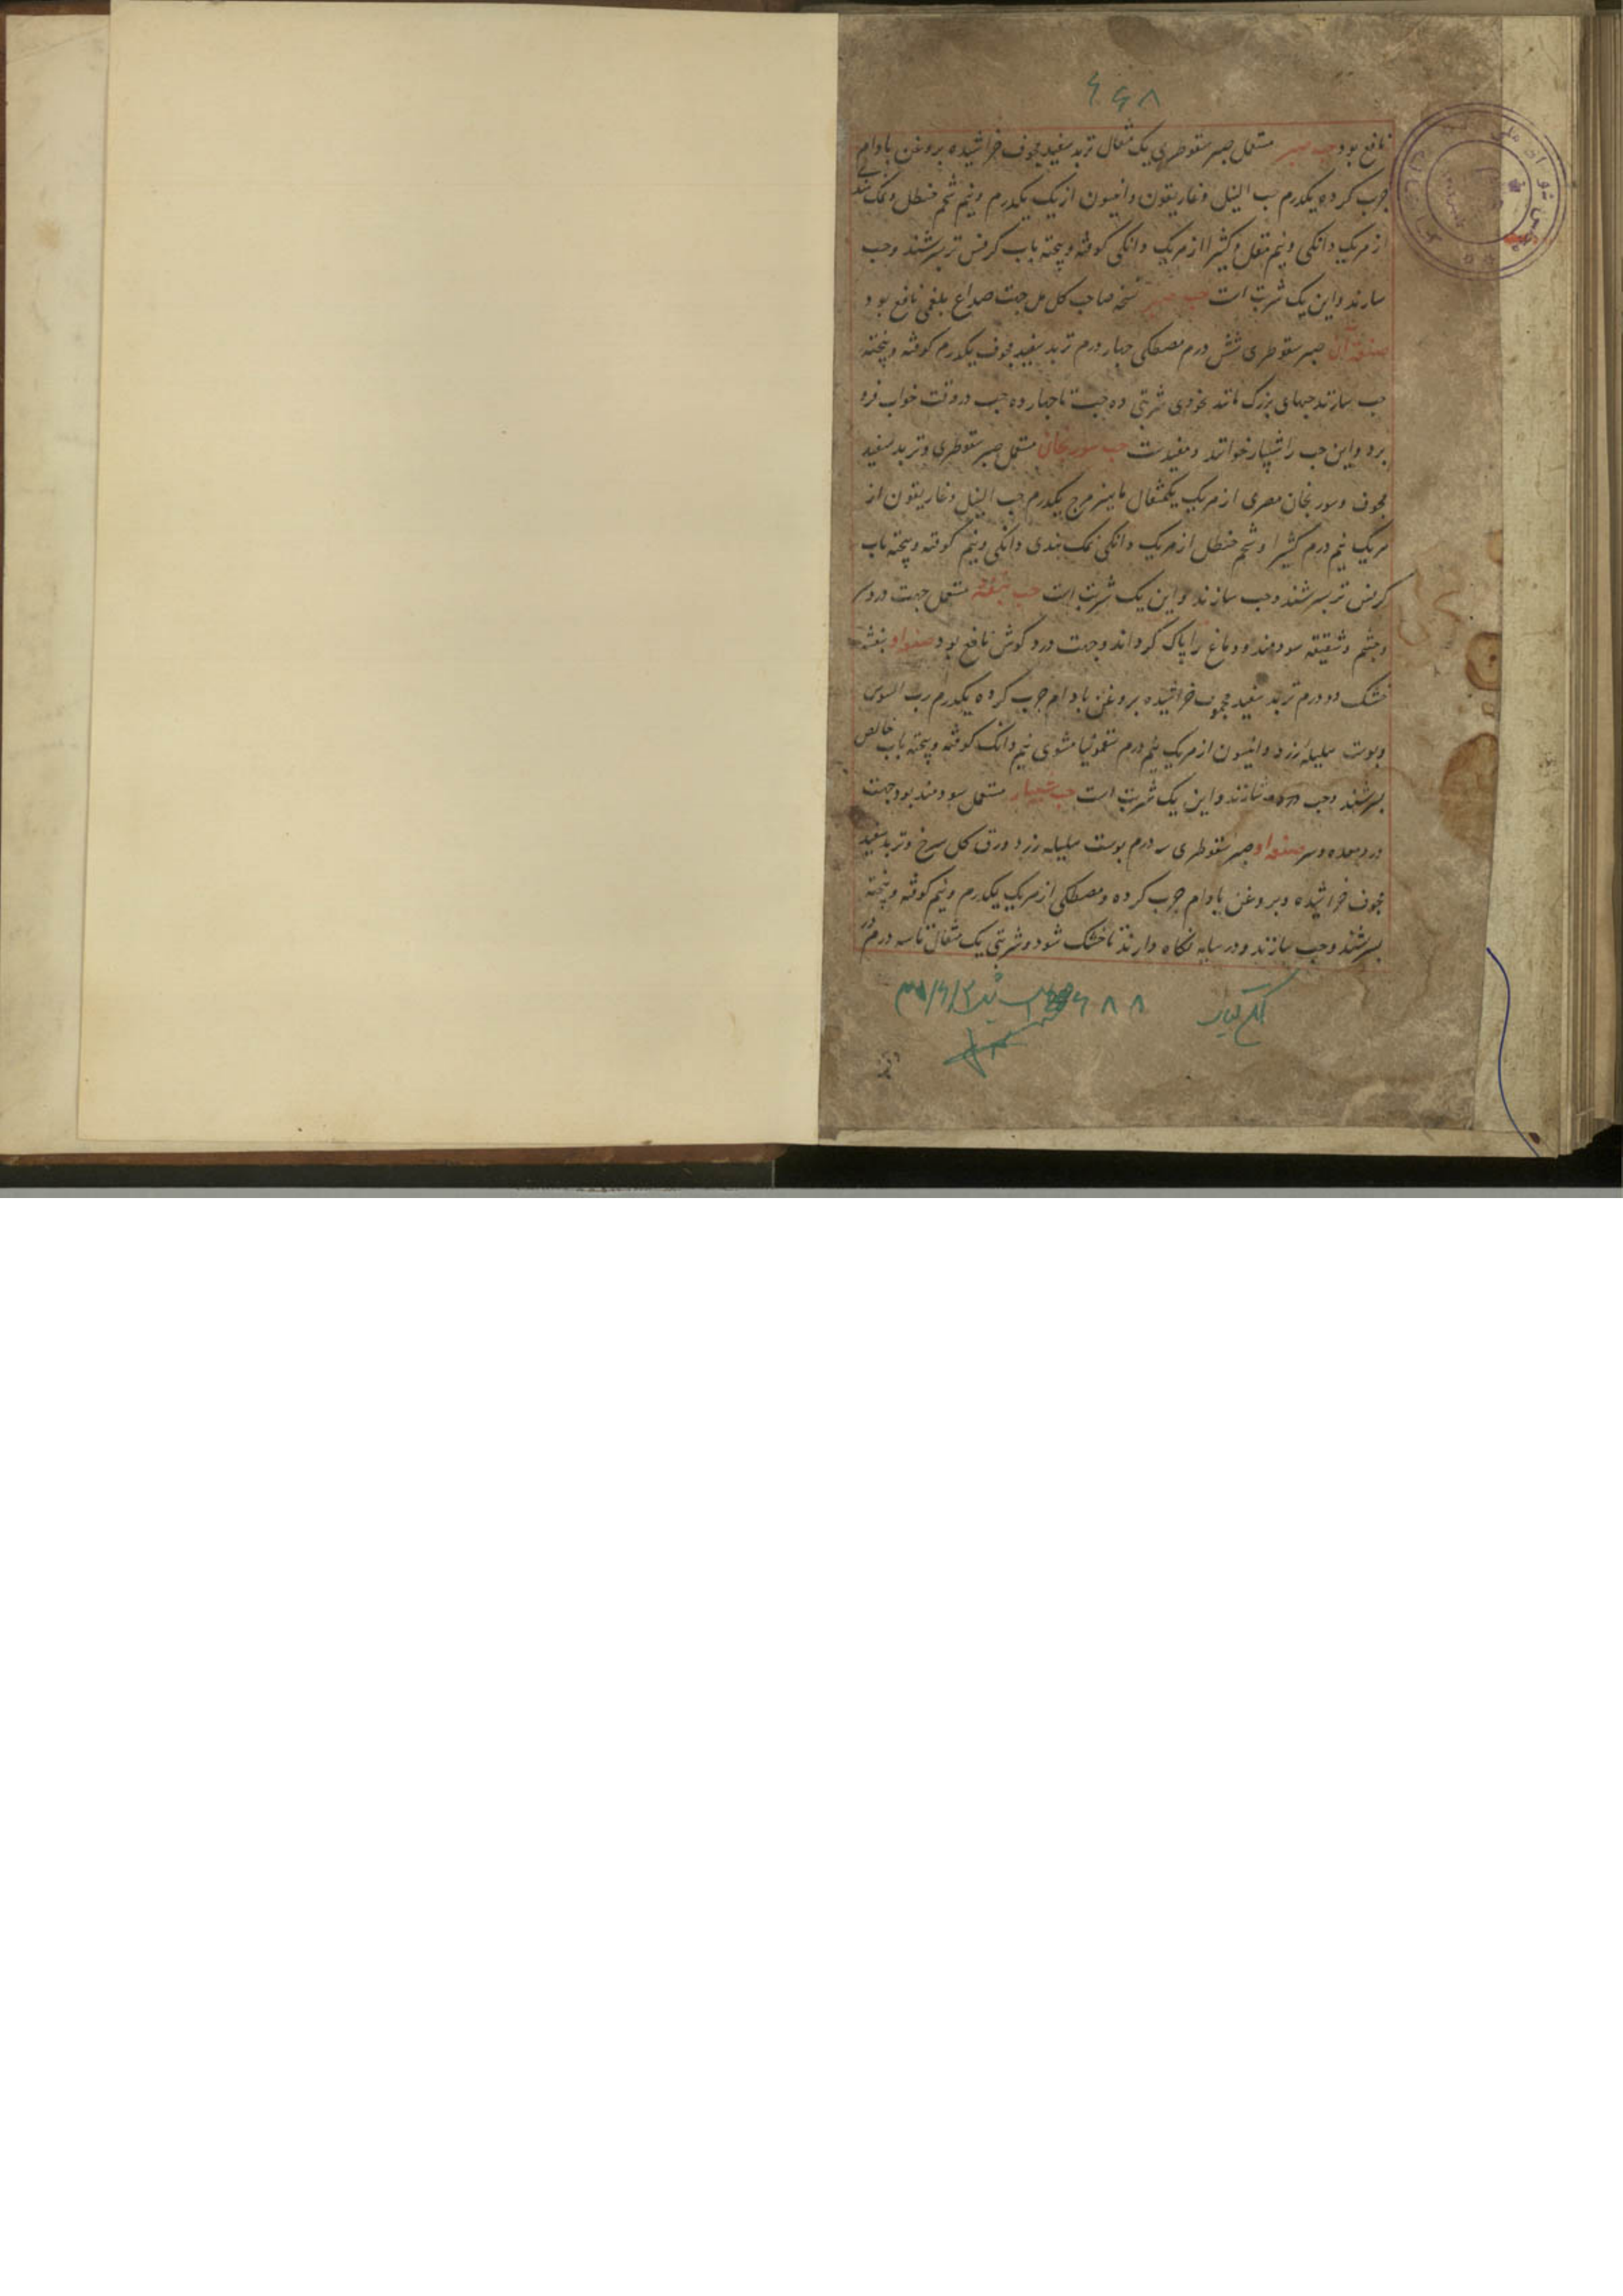 ۶۰۶۸
نافع بود حب صبر مستعمل صبر سقوطری یک مثقال تربد سفید مجوف خراشیده بروغن بادام
چرب کرده یکدرم حب النیل و غاریقون و انیسون از یک یکدرم و نیم شحم حنظل و نمک هندی
از هریک دانکی و نیم مقل و کثیرا از هریک دانکی کوفته و پخته باب کرفس تر بسرشند و حب
سازند و این یک شربت است حب صبر نسخه صاحب کامل جهت صداع بلغمی نافع بود
صنعة آن صبر سقوطری شش درم مصطکی چهار درم تربد سفید مجوف یکدرم کوفته و پخته
حب سازند حبهای بزرک مانند نخودی شربتی ده حبست تا چهارده حب در وقت خواب فرو
برد و این حب را شبیار خوانند و مفیدست حب سورنجان مستعمل صبر سقوطری و تربد سفید
مجوف و سورنجان مصری از هریک یکمثقال ماهیزهرج یکدرم حب النیل و غاریقون از
هریک نیم درم کثیرا و شحم حنظل از هریک دانکی نمک هندی دانکی و نیم کوفته و پخته باب
کرفس تر بسرشند و حب سازند و این یک شربت است حب بنفشه مستعمل جهت درد سر
و چشم و شقیقه سودمند و دماغ را پاک کرداند و جهت درد کوش نافع بود صنعة او بنفشه
خشک دو درم تربد سفید مجوف خراشیده بروغن بادام چرب کرده یکدرم رب السوس
و پوست هلیله زرد و انیسون از هریک نیم درم سقمونیا مشوی نیم دانک کوفته و پخته باب خالص
بسرشند و حب سازند و این یک شربت است حب شبیار مستعمل سودمند بود جهت
درد معده و سر صنعة او صبر سقوطری سه درم پوست هلیله زرد و ورق کل سرخ و تربد سفید
مجوف خراشیده و بروغن بادام چرب کرده و مصطکی از هریک یکدرم و نیم کوفته و پخته
بسرشند و حب سازند و در سایه نکاه دارند تا خشک شود و شربتی یک مثقال تا سه درم در
۶۰۸۸